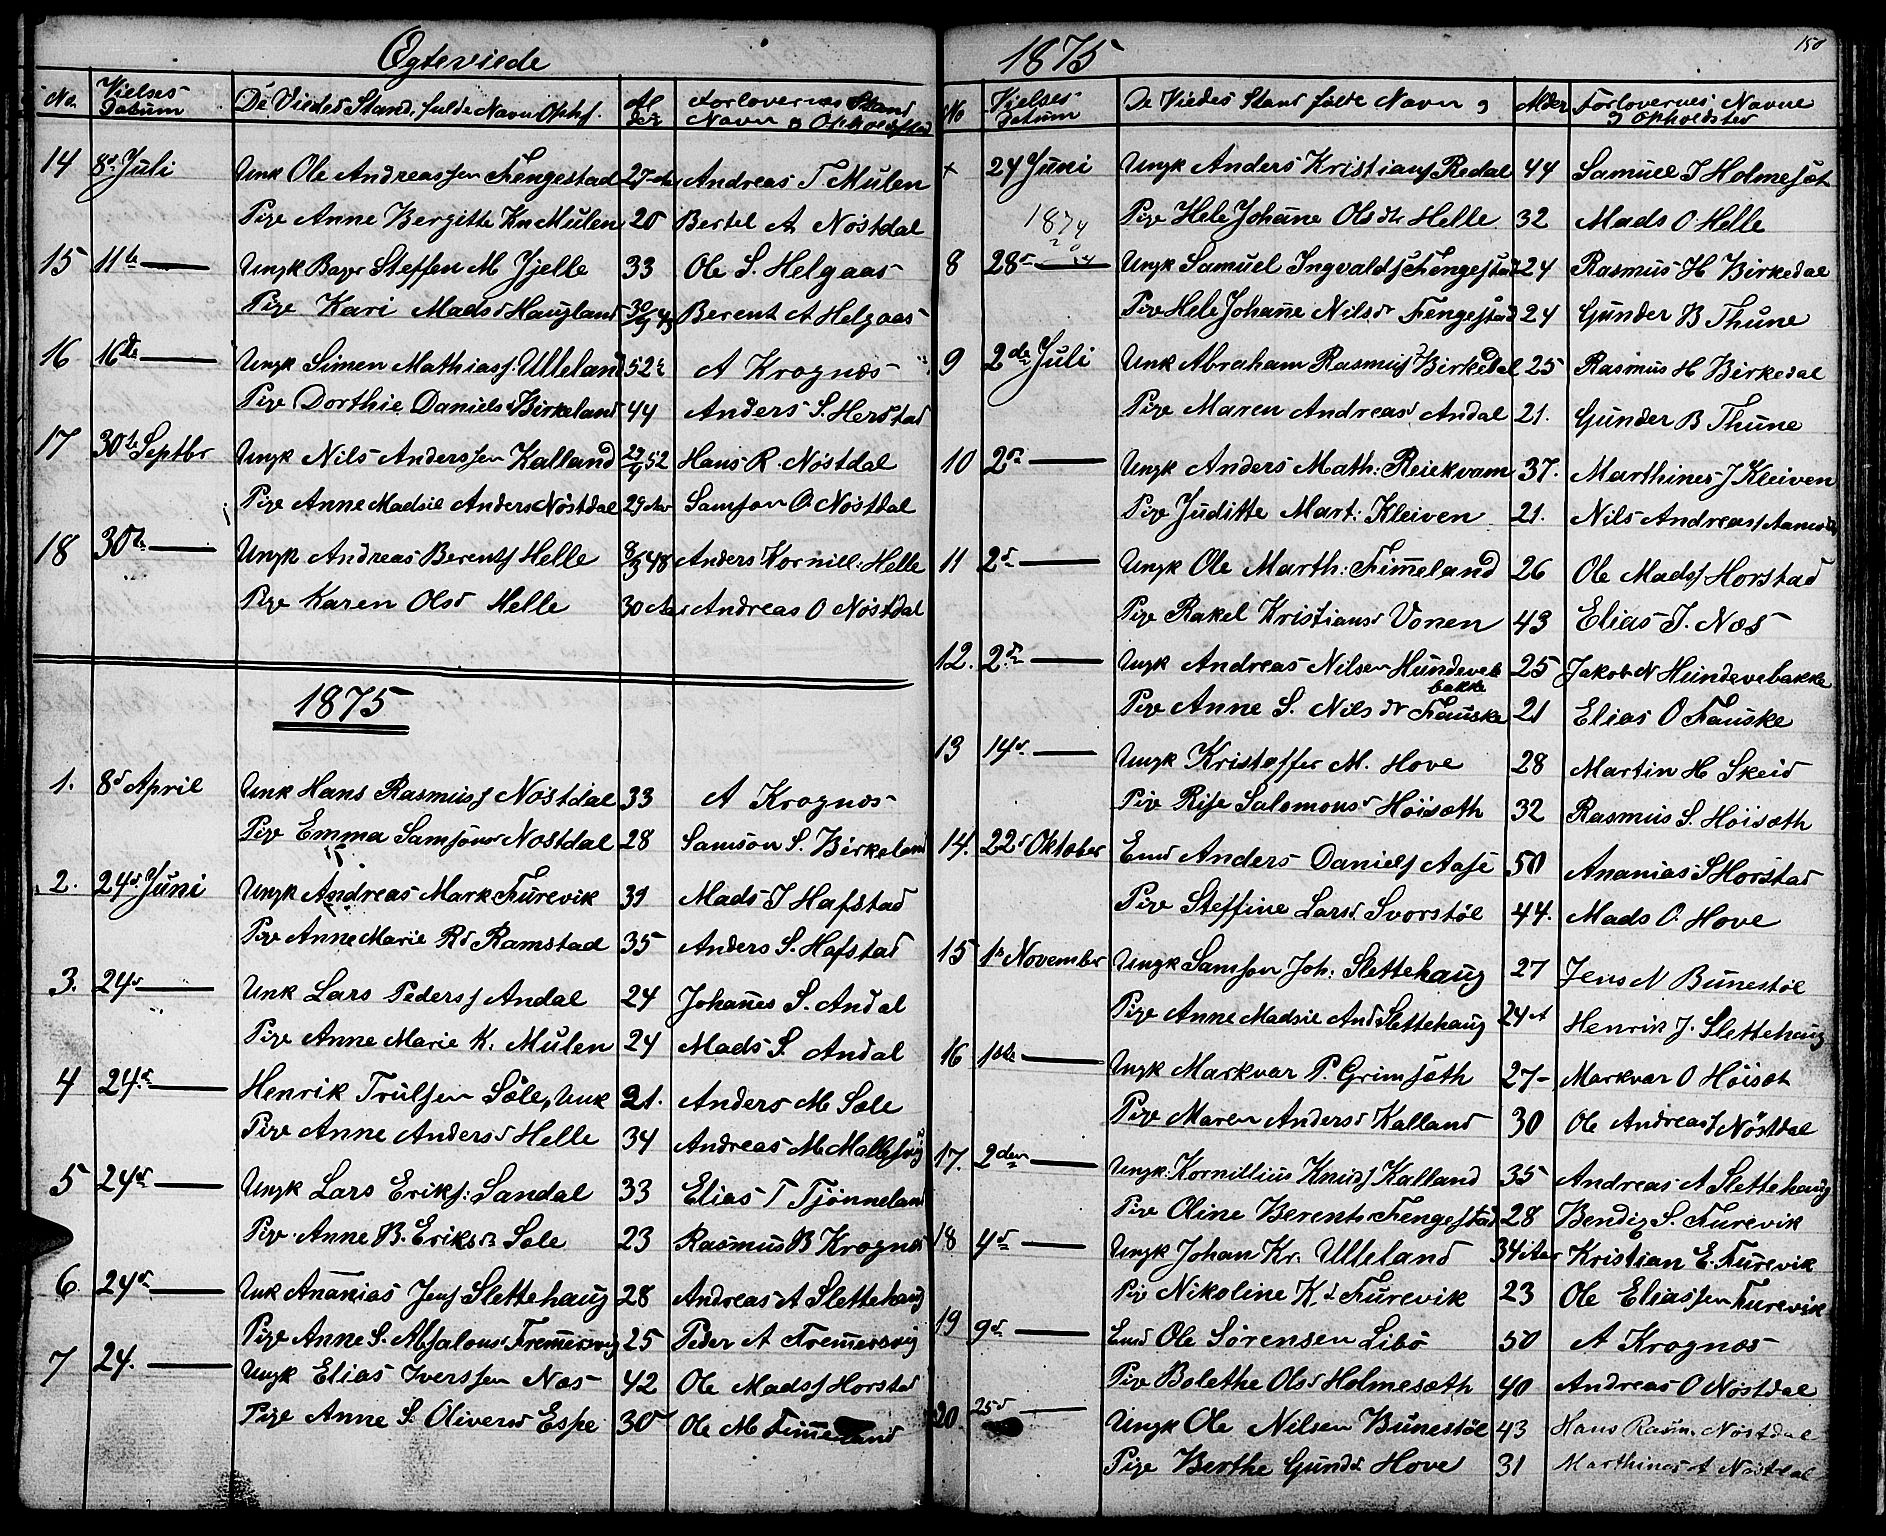 Ægteviede
No. Vielses- Datum De Viedes Stand, fulde Navn Opht. Al der Forlovernes Stand Navn og Opholdsstad
14 8d Juli Unk Ole Andreassen Fengestad 27 Aar Andreas T. Mulen
Pige Anne Bergitte Kn Mulen 20 Bertel A Nöstdal
15 11te — Ungk Steffen M Hjelle 33 Ole S. Helgaas
Pige Kari Madsd Haugland 30/9 49 Berent A Helgaas
16 16de — Ungk Simen Mathiass. Ulleland 52 A Krognæs
Pige Dorthie Danielsd Birkeland 44 Anders S. Herstad
17 30te Septbr Ungk Nils Anderssen Kalland 52 Hans R. Nöstdal
Pige Anne Madsie Andersd Nöstdal 29 Aar Samson O Nöstdal
18 30te — Ungk Andreas Berents Helle 8/3 48 Anders Kornill. Helle
Pige Karen Olsd Helle 30 Aar Andreas O Nöstdal
1875
1. 8d April Unk Hans Rasmuss Nöstdal 33 A Krognæs
Pige Emma Samsonsd Nostdal 28 Samson S. Birkeland
2. 24d Juni Ungk Andreas Mark Furevik 39 Mads J Hafstad
Pige Anne Marie Rd Ramstad 35 Anders S. Hafstad
3. 24d — Unk Lars Peders Andal 24 Johanes S. Andal
Pige Anne Marie K. Mulen 24 Mads S. Andal
4 24d — Henrik Trulsen Söle, Unk 21. Anders M Sole
Pige Anne Andersd Helle 34 Andreas M Mallesvig
5 24d — Ungk Lars Eriks: Sandal 33 Elias T Tjönneland
Pige Anne B. Eriksd Sole 23 Rasmus B Krognæs
6 24d — Unk Ananias Jens Slettehaug 28 Andreas A Slettehaug
Pige Anne S. Absalonsd Fremersvig 25 Peder A Fremersvig
7 24. — Ungk Elias Iverssen Næs 42 Ole Madss Horstad
Pige Anne S. Oliversd Espe 30 Ole M Fimeland
1875
150
No Vielses- Datum De Viedes Stand fulde Navn og Alder Forlovernes Navne og Opholdsted
x 24 Juni Ungk Anders Kristians Redal 44 Samuel J Holmesöt
1874 Pige Hele Johane Olsdtr Helle 32 Mads O Helle
8 28d — Ungk Samuel Ingvalds Fengestad 24 Rasmus H Birkedal
Pige Hele Johane Nilsdr Fengestad 24 Gunder B Thune
9 2de Juli Unk Abraham Rasmuss Birkedal 25 Rasmus H Birkedal
Pige Maren Andreasd Andal 21. Gunder B Thune
10 2d — Ungk Anders Math: Reiekvam 37. Marthines J Kleiven
Pige Juditte Mart: Kleiven 21. Nils Andreass
11 2d — Ungk Ole Marth: Fimeland 26 Ole Madss Horstad
Pige Rakel Kristiansd Vonen 43 Elias J. Næs
12. 2d — Ungk Andreas Nilsen Hundeve bakke 25 Jakob N Hundevebakke
Pige Anne S. Nilsdr Fauske 21 Elias O Fauske
13 14d — Ungk Kristoffer M. Hove 28 Martin H Skeid
Pige Rise Salomonsd Höisæth 32 Rasmus S. Höisæth
14. 22d Oktober Emd Anders Daniels Aase 50 Ananias S Horstad
Pige Steffine Larsd Svorstöl 44. Mads O. Hove
15 1d November Ungk Samson Joh. Slettehaug 27 Jens N Bunestöl
Pige Anne Madsie And Slettehaug 24 A Henrik J. Slettehaug
16 1ste — Ungk Markvar P. Grimsöth 27- Markvar O Höisæt
Pige Maren Andersd Kalland 30 Ole Andreass Nöstdal
17. 2den — Ungk Kornillius Knuds Kalland 35 Andreas A Slettehaug
Pige Oline Berentsd Fengestad 28 Bendig S. Furevik
18 4d — Ungk Johan Kr. Ulleland 34 Aar Kristian E. Furevik
Pige Nikoline K.d Furevik 23 Ole Eliassen Furevik
19 9d — Emd Ole Sörensen Libö 50 A Krognæs
Pige Bolethe Olsd Holmesæth 40 Andreas O Nöstdal
20. 25d — Ungk Ole Nilsen Bunestöl 43 Hans Rasm. Nöstdal
Pige Berthe Gundd Hove 31 Marthines A Nöstdal